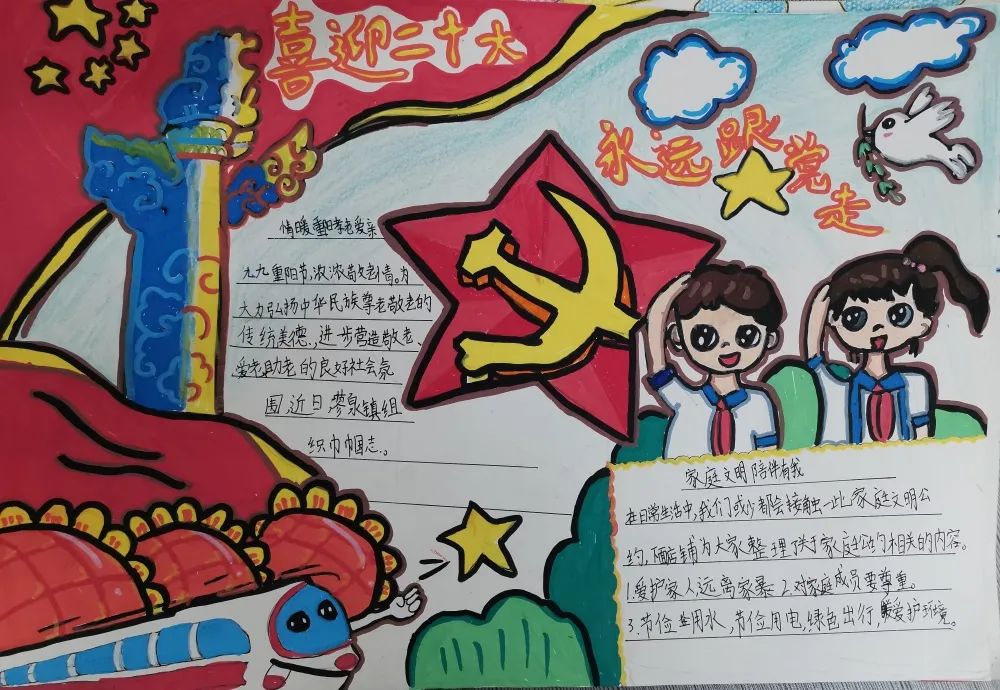 喜迎二十大
永远跟党走
情暖重阳孝老爱亲
九九重阳节,浓浓敬老情。为
大力弘扬中华民族尊老敬老的
传统美德,进步营造敬老、
爱老助老的良好社会氛
围近日廖泉镇组
织巾帼志。
家庭文明陪伴有我
在日常生活中,我们或少都会接触一此家庭文明公
约,店铺为大家整理了关于家庭公约相关的内容。
1.爱护家人远离家暴2.对家庭成员要尊重。
3.节俭用水,节俭用电,绿色出行,爱护环境。